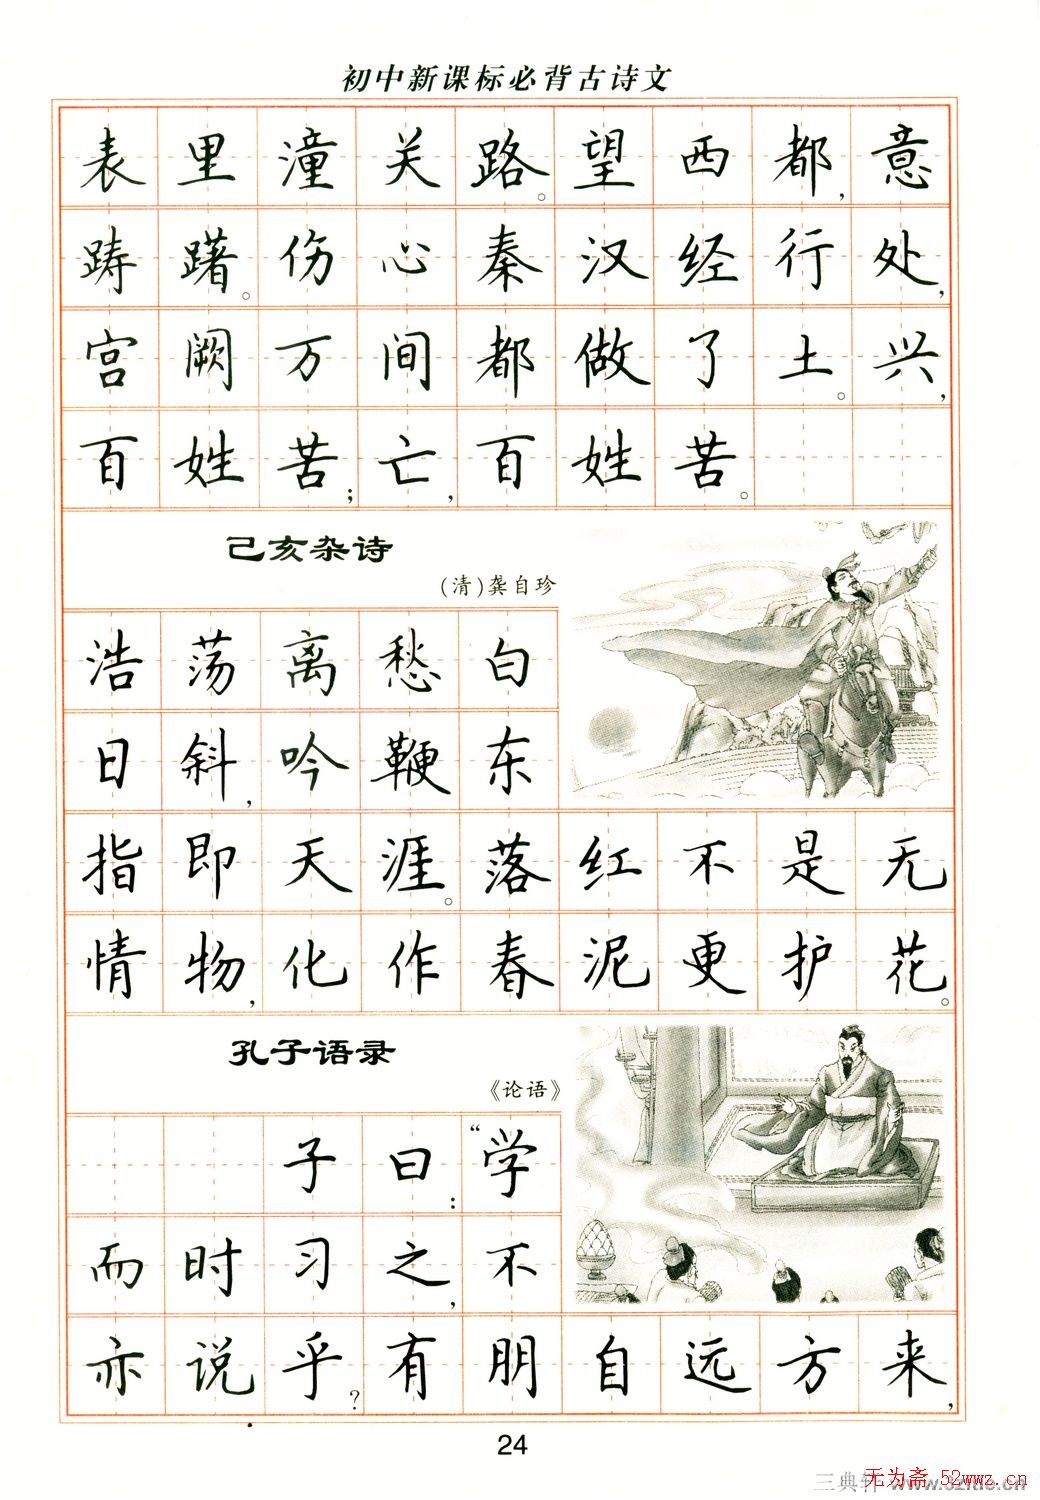 初中新课标必背古诗文
表里潼关路。望西都,意
踌躇。伤心秦汉经行处,
宫阙万间都做了土。兴,
百姓苦;亡,百姓苦。
己亥杂诗
(清)龚自珍
浩荡离愁白
日斜,吟鞭东
指即天涯。落红不是无
情物,化作春泥更护花。
孔子语录
《论语》
子曰:“学
而时习之,不
亦说乎?有朋自远方来,
24
三典轩
无为斋 52wwz.cn